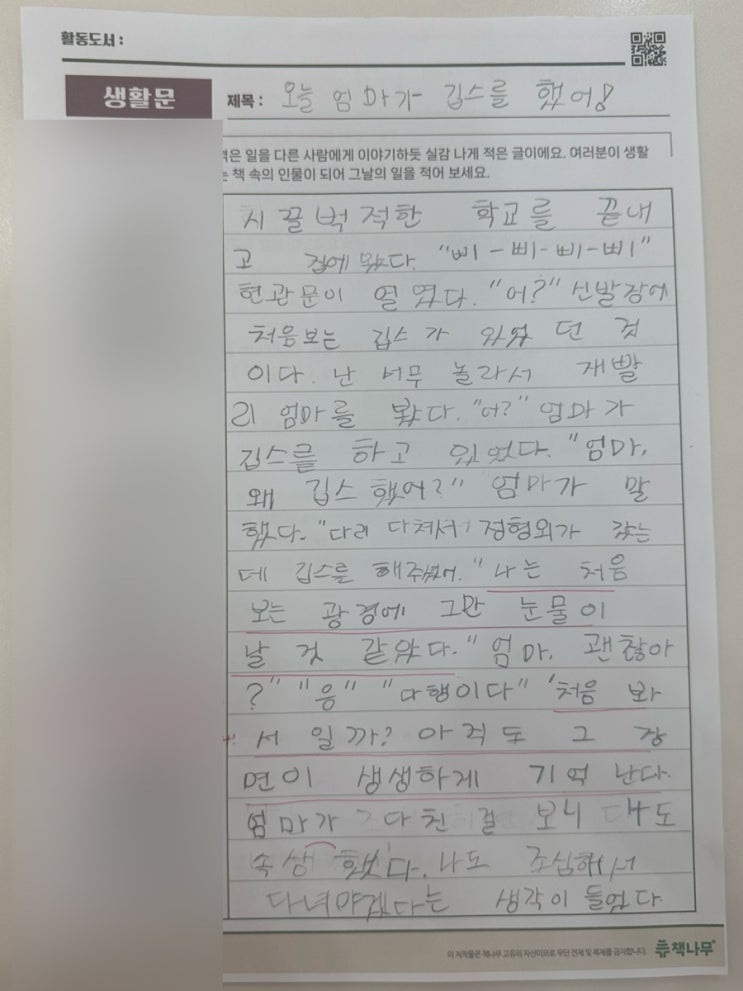 활동도서 :
생활문
제목 : 오늘 엄마가 깁스를 했어!
적은 일을 다른 사람에게 이야기하듯 실감 나게 적은 글이에요. 여러분이 생활
는 책 속의 인물이 되어 그날의 일을 적어 보세요.
시끌벅적한 학교를 끝내
고 집에 왔다. "삐-삐-삐-삐"
현관문이 열렸다. "어?" 신발장에
처음보는 깁스가 있었던 것
이다. 난 너무 놀라서 재빨
리 엄마를 봤다. "어?" 엄마가
깁스를 하고 있었다. "엄마,
왜 깁스했어?" 엄마가 말
했다. "다리 다쳐서 정형외과 갔는
데 깁스를 해주셨어." 나는 처음
보는 광경에 그만 눈물이
날 것 같았다. "엄마, 괜찮아
?" "응" "다행이다" 처음 봐
서 일까? 아직도 그 장
면이 생생하게 기억 난다.
엄마가 다친 걸 보니 내도
속상 했다. 나도 조심해서
다녀야겠다는 생각이 들었다
이 저작물은 책나무 고유의 자산이므로 무단 전재 및 복제를 금지합니다. 책나무